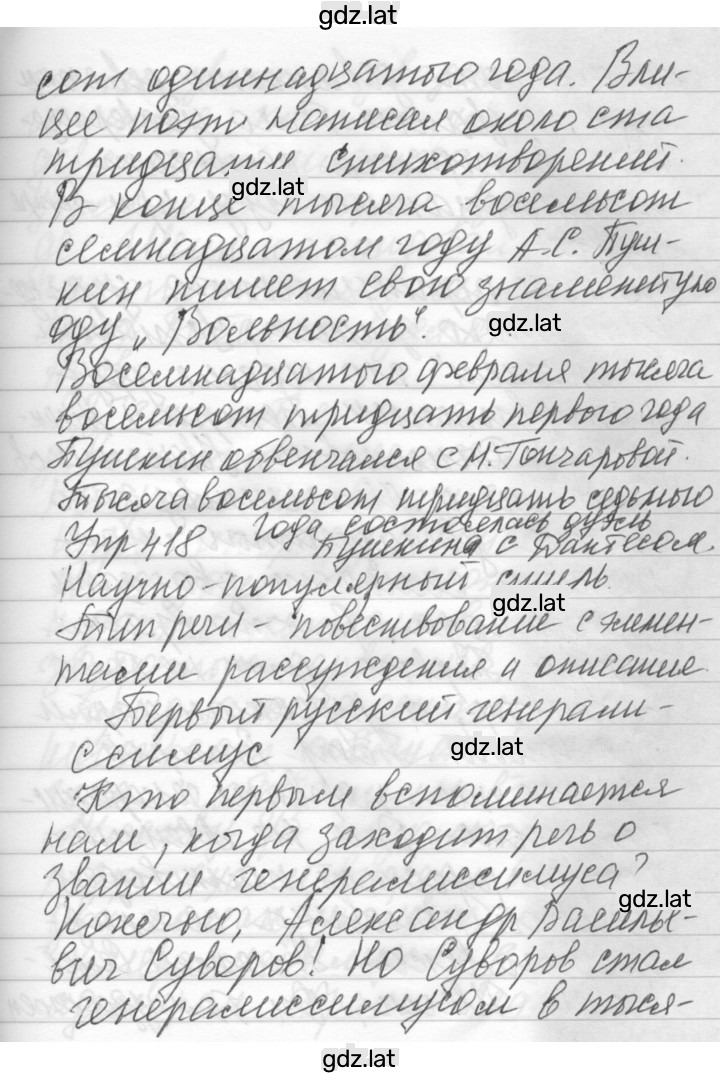 gdz.lat
сот одиннадцатого года. В ли-
цее поэт написал около ста
тридцати стихотворений.
gdz.lat
В конце тысяча восемьсот
семнадцатом году А.С. Пуш-
кин пишет свою знаменитую
оду „Вольность“.
gdz.lat
Восемнадцатого февраля тысяча
восемьсот тридцать первого года
Пушкин обвенчался с Н. Гончаровой.
Тысяча восемьсот тридцать седьмого
года состоялась дуэль
Упр 418 Пушкина с Дантесом.
Научно-популярный стиль.
gdz.lat
Тип речи - повествование с элемен-
тами рассуждения и описание
Первый русский генерали-
ссимус
gdz.lat
Кто первым вспоминается
нам, когда заходит речь о
звании генералиссимуса?
gdz.lat
Конечно, Александр Василье-
вич Суворов! Но Суворов стал
генералиссимусом в тыся-
gdz.lat